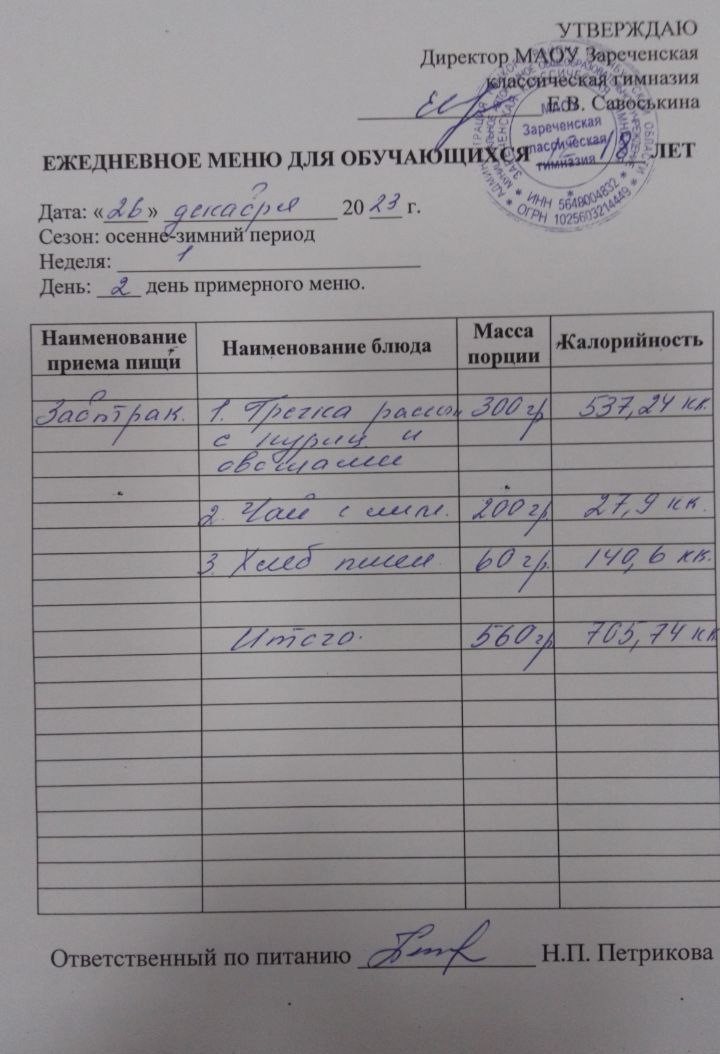 УТВЕРЖДАЮ
Директор МАОУ Зареченская
классическая гимназия
Е.В. Савоськина
МАОУ
Зареченская
классическая
гимназия
* ИНН 5648004832 *
* ОГРН 1025603214449 *
ЕЖЕДНЕВНОЕ МЕНЮ ДЛЯ ОБУЧАЮЩИХСЯ 18 ЛЕТ
Дата: «26» декабря 2023 г.
Сезон: осенне-зимний период
Неделя: 1
День: 2 день примерного меню.
Наименование приема пищи Наименование блюда Масса порции Калорийность
Завтрак. 1. Гречка рассып 300 гр 537,24 кк.
с куриц и
овощами
2. Чай с лим. 200 гр. 27,9 кк.
3. Хлеб пшен 60 гр. 140,6 кк.
Итого. 560 гр 705,74 кк
Ответственный по питанию Н.П. Петрикова